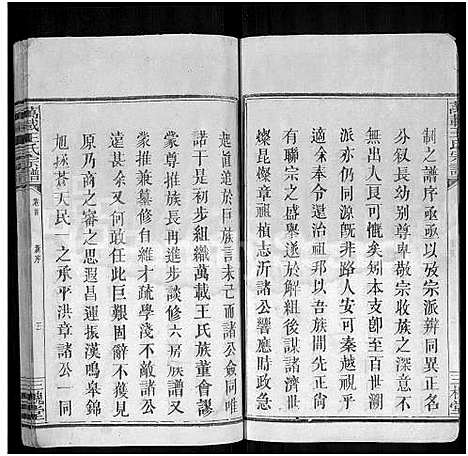 萬載王氏宗譜
制之譜序亟亟以攷宗派辨同異正名
分視長幼别尊卑敬宗收族之深意不
可不慨然矣矧本支卽至百世溯
厥初祖旣非路人安秦越視乎
令余奉令還治祖邦以吾族間先代
有聯宗之盛舉遂於解組後諸濟世
燦昆燦章祖楨志沂諸公響應時
起眞道於巨族言未已而諸公僉同唯
諾于是初步組織萬載王氏族董會謬
蒙推族長再進步談修六房族譜又
蒙推兼纂修自維才疏學淺奉諸公
甚任余又勸亡巨艱辭不獲見
原乃商之審之思遐昌運振漢鳴皋錦
旭拯蒼天民一之承平洪章諸公一同
萬載王氏宗譜
卷首
新序
三槐堂
三槐堂